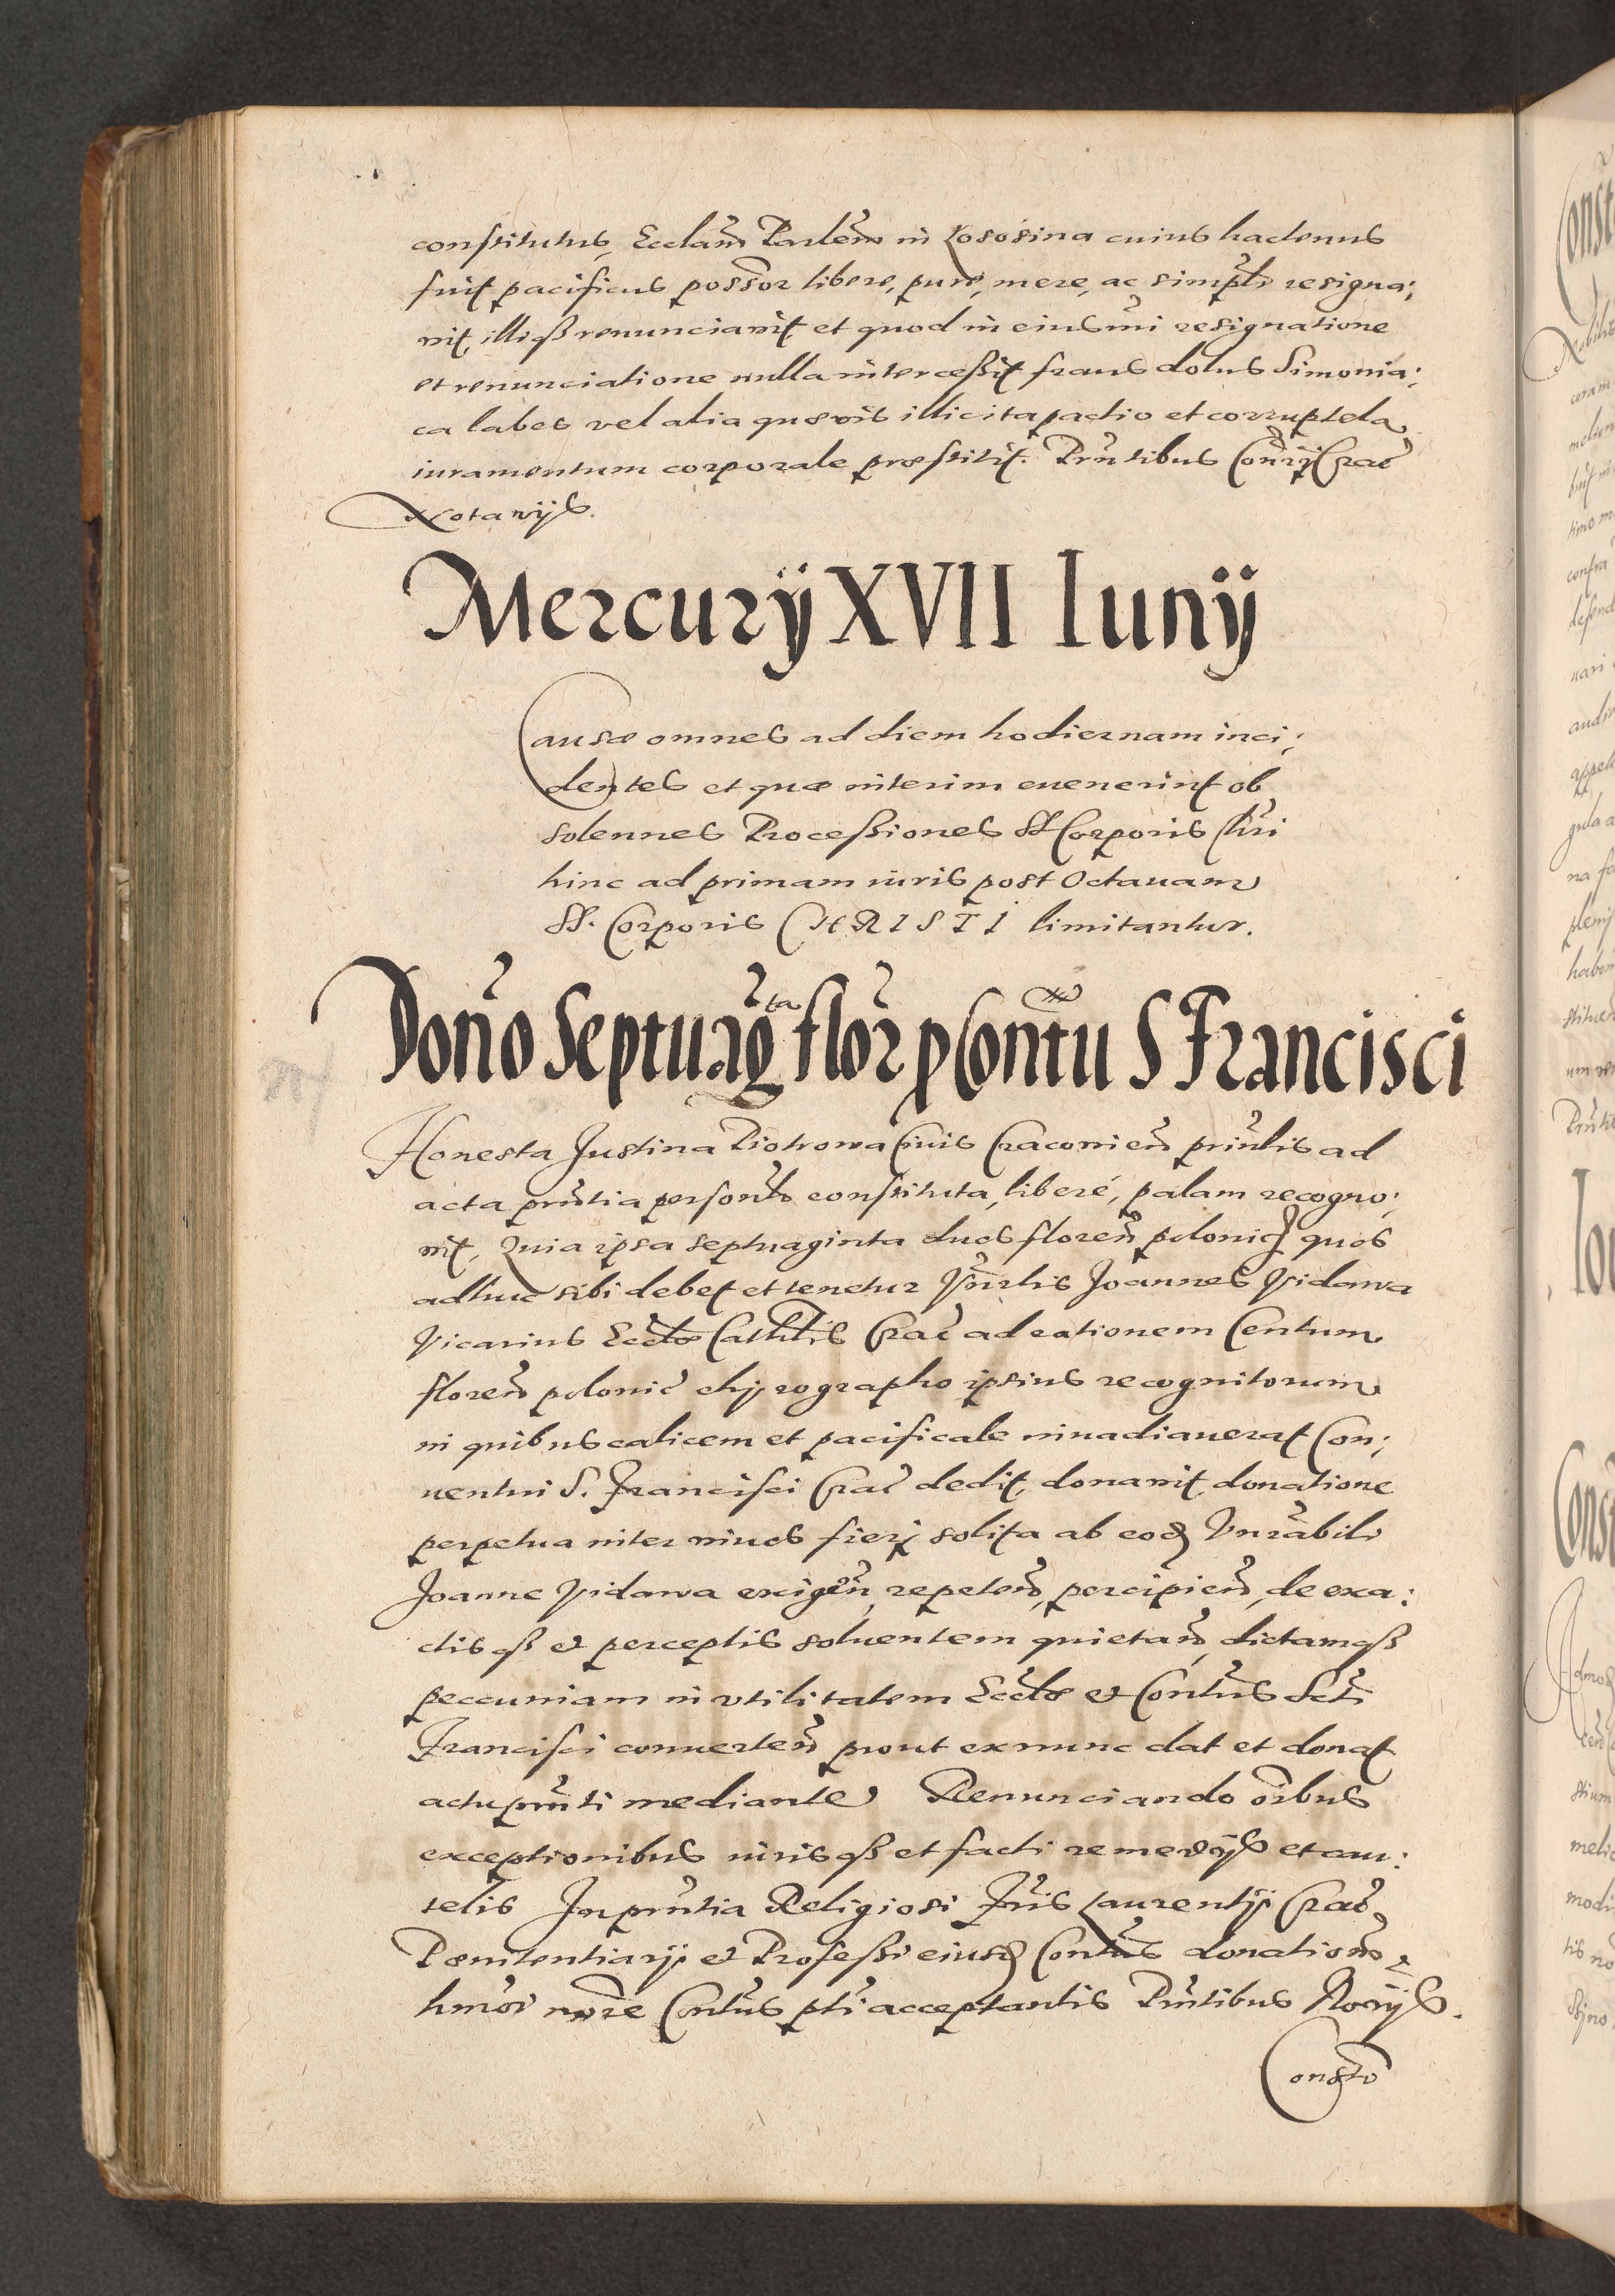 constitutus, Eccl̃am Parlẽm in Lososina cuius hactenus
fuit pacificus possor̃ libere, pure, mere, ac simpl̃r resigna:
uit, illiqȝ renunciauit et quod in eiusm̃i resignatione
et renunciatione nulla intercessit fraus dolus Simonia:
ca labes vel alia quævis illicita pactio et corruptela
iuramentum corporale præstitit. Prñtibus Crac̃
Notarijs.
Mercurij XVII Iunij
Causæ omnes ad diem hodiernam inci:
dentes et quæ interim euenerint ob
solennes Processiones SS Corporis Chri
hinc ad primam iuris post Octauam
SS. Corporis CHRISTI limitantur.
Doño Septuag̃ta flor̃ p Conṽtu S Francisci
Honesta Justina Piotrowa Ciuis Cracouieñ prinl̃is ad
acta prñtia personl̃r constituta, liberé, palam recogno:
uit, Quia ipsa septuaginta duos floreñ polonic̃ quos
adhuc sibi debet et tenetur Vñrlis Joannes Vidawa
Vicarius Eccl̃æ Cathl̃is Crac̃ ad rationem Centum
floreñ polonic̃ chyrographo ipsius recognitorum
in quibus calicem et pacificale inuadiauerat Con:
uentui S. Francisci Crac̃ dedit, donauit, donatione
perpetua inter uiuos fieri solita ab eod Vnrãbili
Joanne Vidawa exigeñ, repeteñ, percipieñ, de exa:
ctis qȝ et perceptis soluentem quietañ, dictamqȝ
peccuniam in vtilitatem Eccl̃æ et Contũs Scti
Francisci conuerteñ prout ex nunc dat et donat
actu prñti mediante Renunciando oĩbus
exceptionibus iuris qȝ et facti remedijs et cau:
telis In prñtia Religiosi Fr̃is Laurentij Crac̃
Pœnitentiarij et Professi eiusd Contũs donationẽ
hmõi noĩe Contũs pti acceptantis Prñtibus Norijs.
Consto